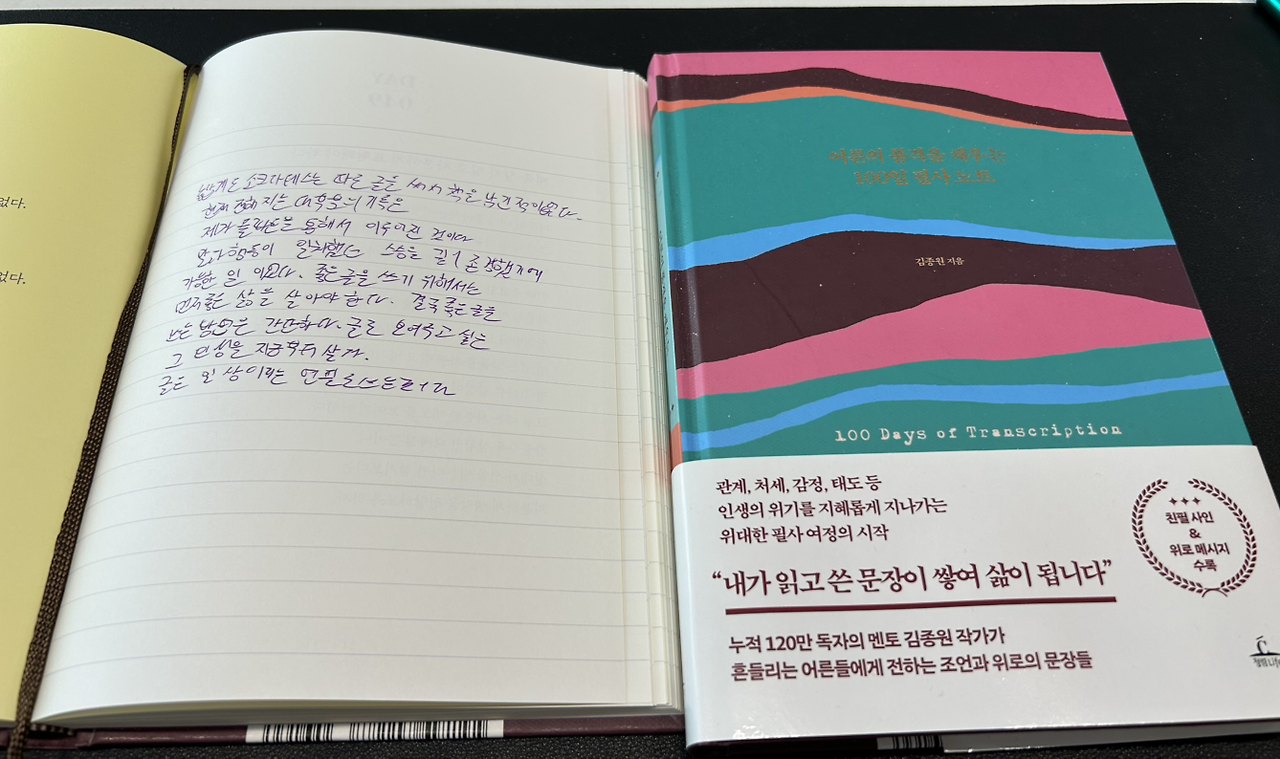 없다.
없다.
놀랍게도 소크라테스는 따로 글을 써서 책을 남긴 적이 없다.
현재 전해지는 대부분의 기록은
제자 플라톤을 통해서 이루어진 것이다
말과 행동이 일치했던 스승을 깊이 존경했기에
가능한 일이었다. 좋은 글을 쓰기 위해서는
먼저 좋은 삶을 살아야 한다. 결국 좋은 글을
쓰는 방법은 간단하다. 글로 보여주고 싶은
그 인생을 지금부터 살자.
글은 일상이라는 연필로 쓰는 거다
어른의 품격을 채우는
100일 필사 노트
김종원 지음
100 Days of Transcription
관계, 처세, 감정, 태도 등
인생의 위기를 지혜롭게 지나가는
위대한 필사 여정의 시작
“내가 읽고 쓴 문장이 쌓여 삶이 됩니다”
누적 120만 독자의 멘토 김종원 작가가
흔들리는 어른들에게 전하는 조언과 위로의 문장들
친필 사인
&
위로 메시지
수록
청림Life